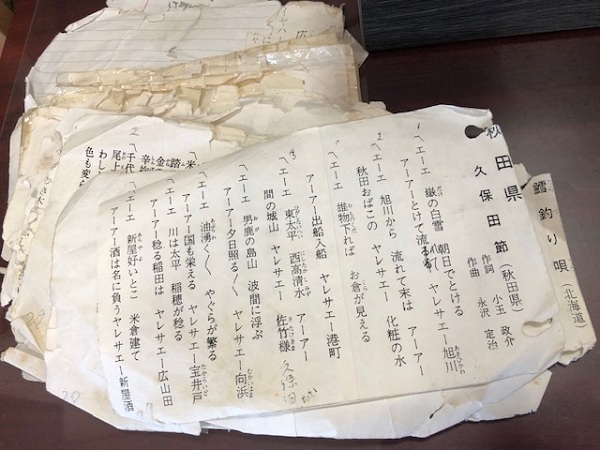 秋田県
久保田節（秋田県）
作詞 小玉 政介
作曲 永沢 定治
ヘエーエ 嶽の白雪 朝日でとける
アーアーとけて流るる アーアー
ヤレサエー旭川
ヘエーエ 旭川から 流れて末は アーアー
秋田おばこの ヤレサエー 化粧の水
ヘエーエ 雄物下れば お倉が見える
アーアー出船入船 ヤレサエー港町
ヘエーエ 東太平 西高清水 アーアー
間の城山 ヤレサエー 佐竹様
久保田 城
ヘエーエ 男鹿の島山 波間に浮ぶ
アーアー夕日照る ヤレサエー向浜
ヘエーエ 油湧く やぐらが繁る
アーアー国も栄える ヤレサエー宝井戸
ヘエーエ 川は太平 稲穂が稔る
アーアー稔る稲田は ヤレサエー広山田
ヘエーエ 新屋好いとこ 米倉建て
アーアー酒は名に負うヤレサエー新屋酒
鱈釣り唄（北海道）
米
踏
金
辛
千代
尾上
わし
色も変ら